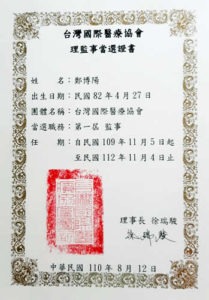 台灣國際醫療協會
理監事當選證書
姓 名：鄭博陽
出生日期：民國 82 年 4 月 27 日
團體名稱：台灣國際醫療協會
當選職務：第一屆 監事
任 期：自民國 109 年 11 月 5 日起
至民國 112 年 11 月 4 日止
理事長 徐瑞駿
徐瑞駿
中華民國 110 年 8 月 12 日